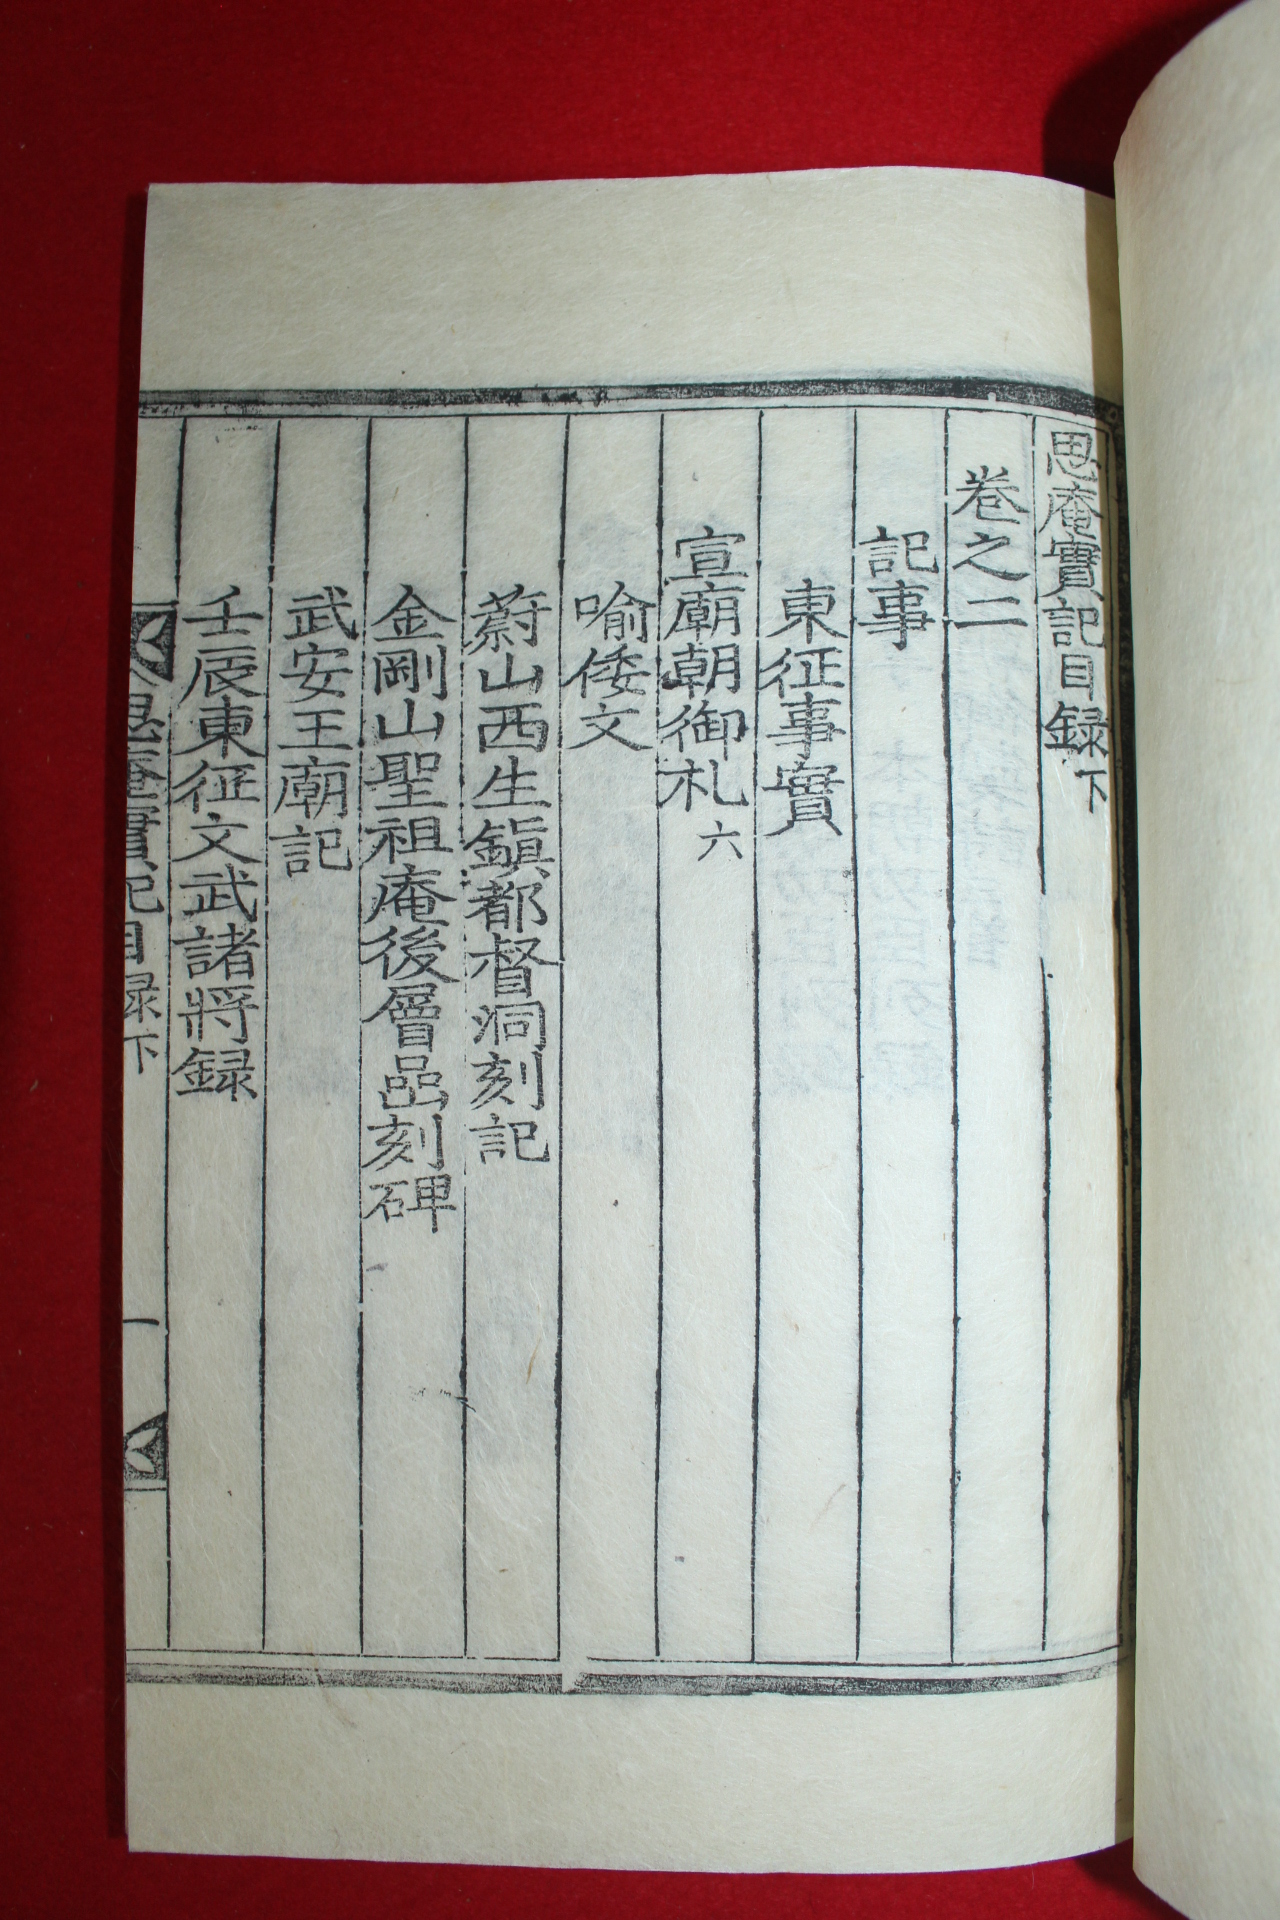 思庵實記目録下
卷之二
記事
東征事實
宣廟朝御札六
喻倭文
蔚山西生鎭都督洞刻記
金剛山聖祖庵後層嵒刻碑
武安王廟記
壬辰東征文武諸將録
思庵實記目録下 一